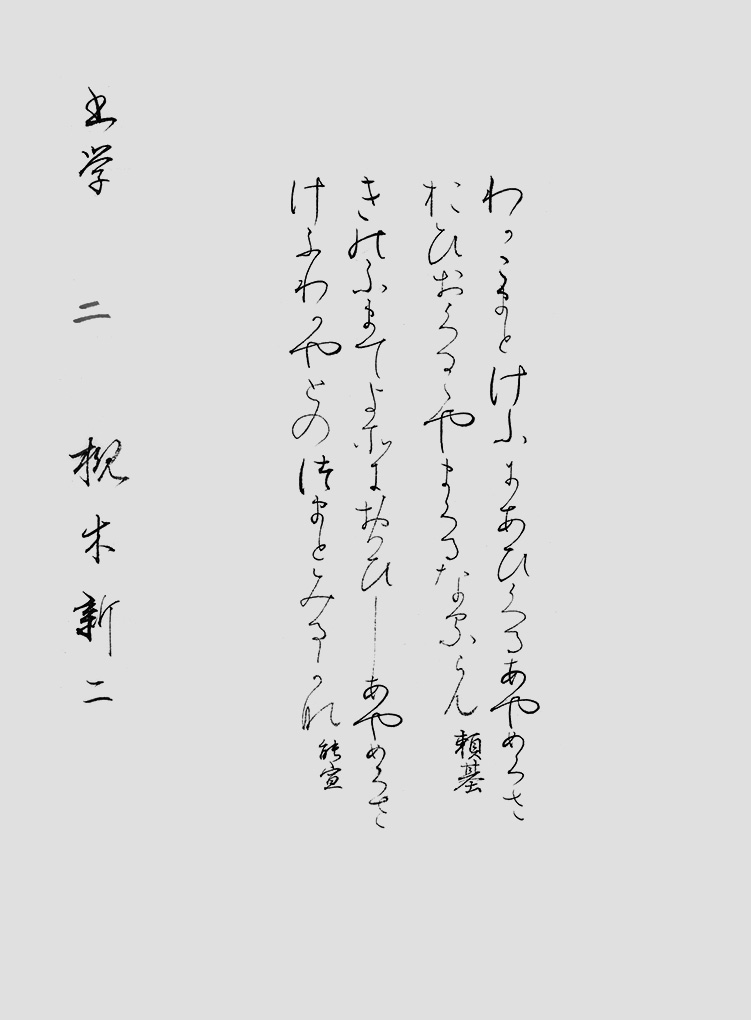 わかこまとけふにあひくるあやめくさ
おひおくるゝやまくるなるらん 頼基
きのふまてよそにおもひしあやめくさ
けふわかやとのつまとみるかな 能宣
書学 二 槻木新二